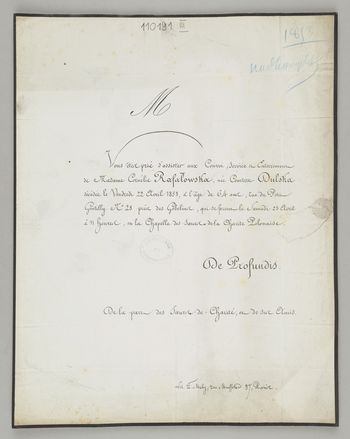 110191 III
1853
M
Vous êtes prié d'assister aux Convoi, Service et Enterrement
de Madame Cornélie Rafałowska, née Comtesse Dulska
décédée le Vendredi 22 Avril 1853, à l'âge de 54 ans, rue du Petit
Gentilly Nº 28 près des Gobelins, qui se feront le Samedi 23 Avril
à 11 heures, en la Chapelle des Sœurs de la Charité Polonaise.
De Profundis
De la part des Sœurs de Charité, et de ses Amis.
Lith. rue Mouffetard 27, Paris.